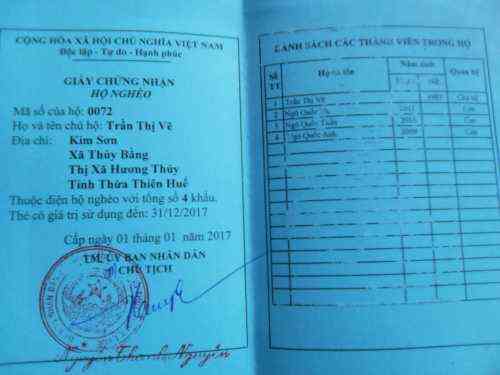 CỘNG HÒA XÃ HỘI CHỦ NGHĨA VIỆT NAM
Độc lập - Tự do - Hạnh phúc
GIẤY CHỨNG NHẬN
HỘ NGHÈO
Mã số của hộ: 0072
Họ và tên chủ hộ: Trần Thị Vẽ
Địa chỉ: Kim Sơn
Xã Thủy Bằng
Thị Xã Hương Thủy
Tỉnh Thừa Thiên Huế
Thuộc diện hộ nghèo với tổng số 4 khẩu.
Thẻ có giá trị sử dụng đến: 31/12/2017
Cấp ngày 01 tháng 01 năm 2017
TM. ỦY BAN NHÂN DÂN
CHỦ TỊCH
Nguyễn Thanh Nguyên
DANH SÁCH CÁC THÀNH VIÊN TRONG HỘ
Số TT Họ và tên Năm sinh Quan hệ
1 Trần Thị Vẽ Chủ hộ
2 Ngô Quốc Con
3 Ngô Quốc Tuấn Con
4 Ngô Quốc Anh 2009 Con